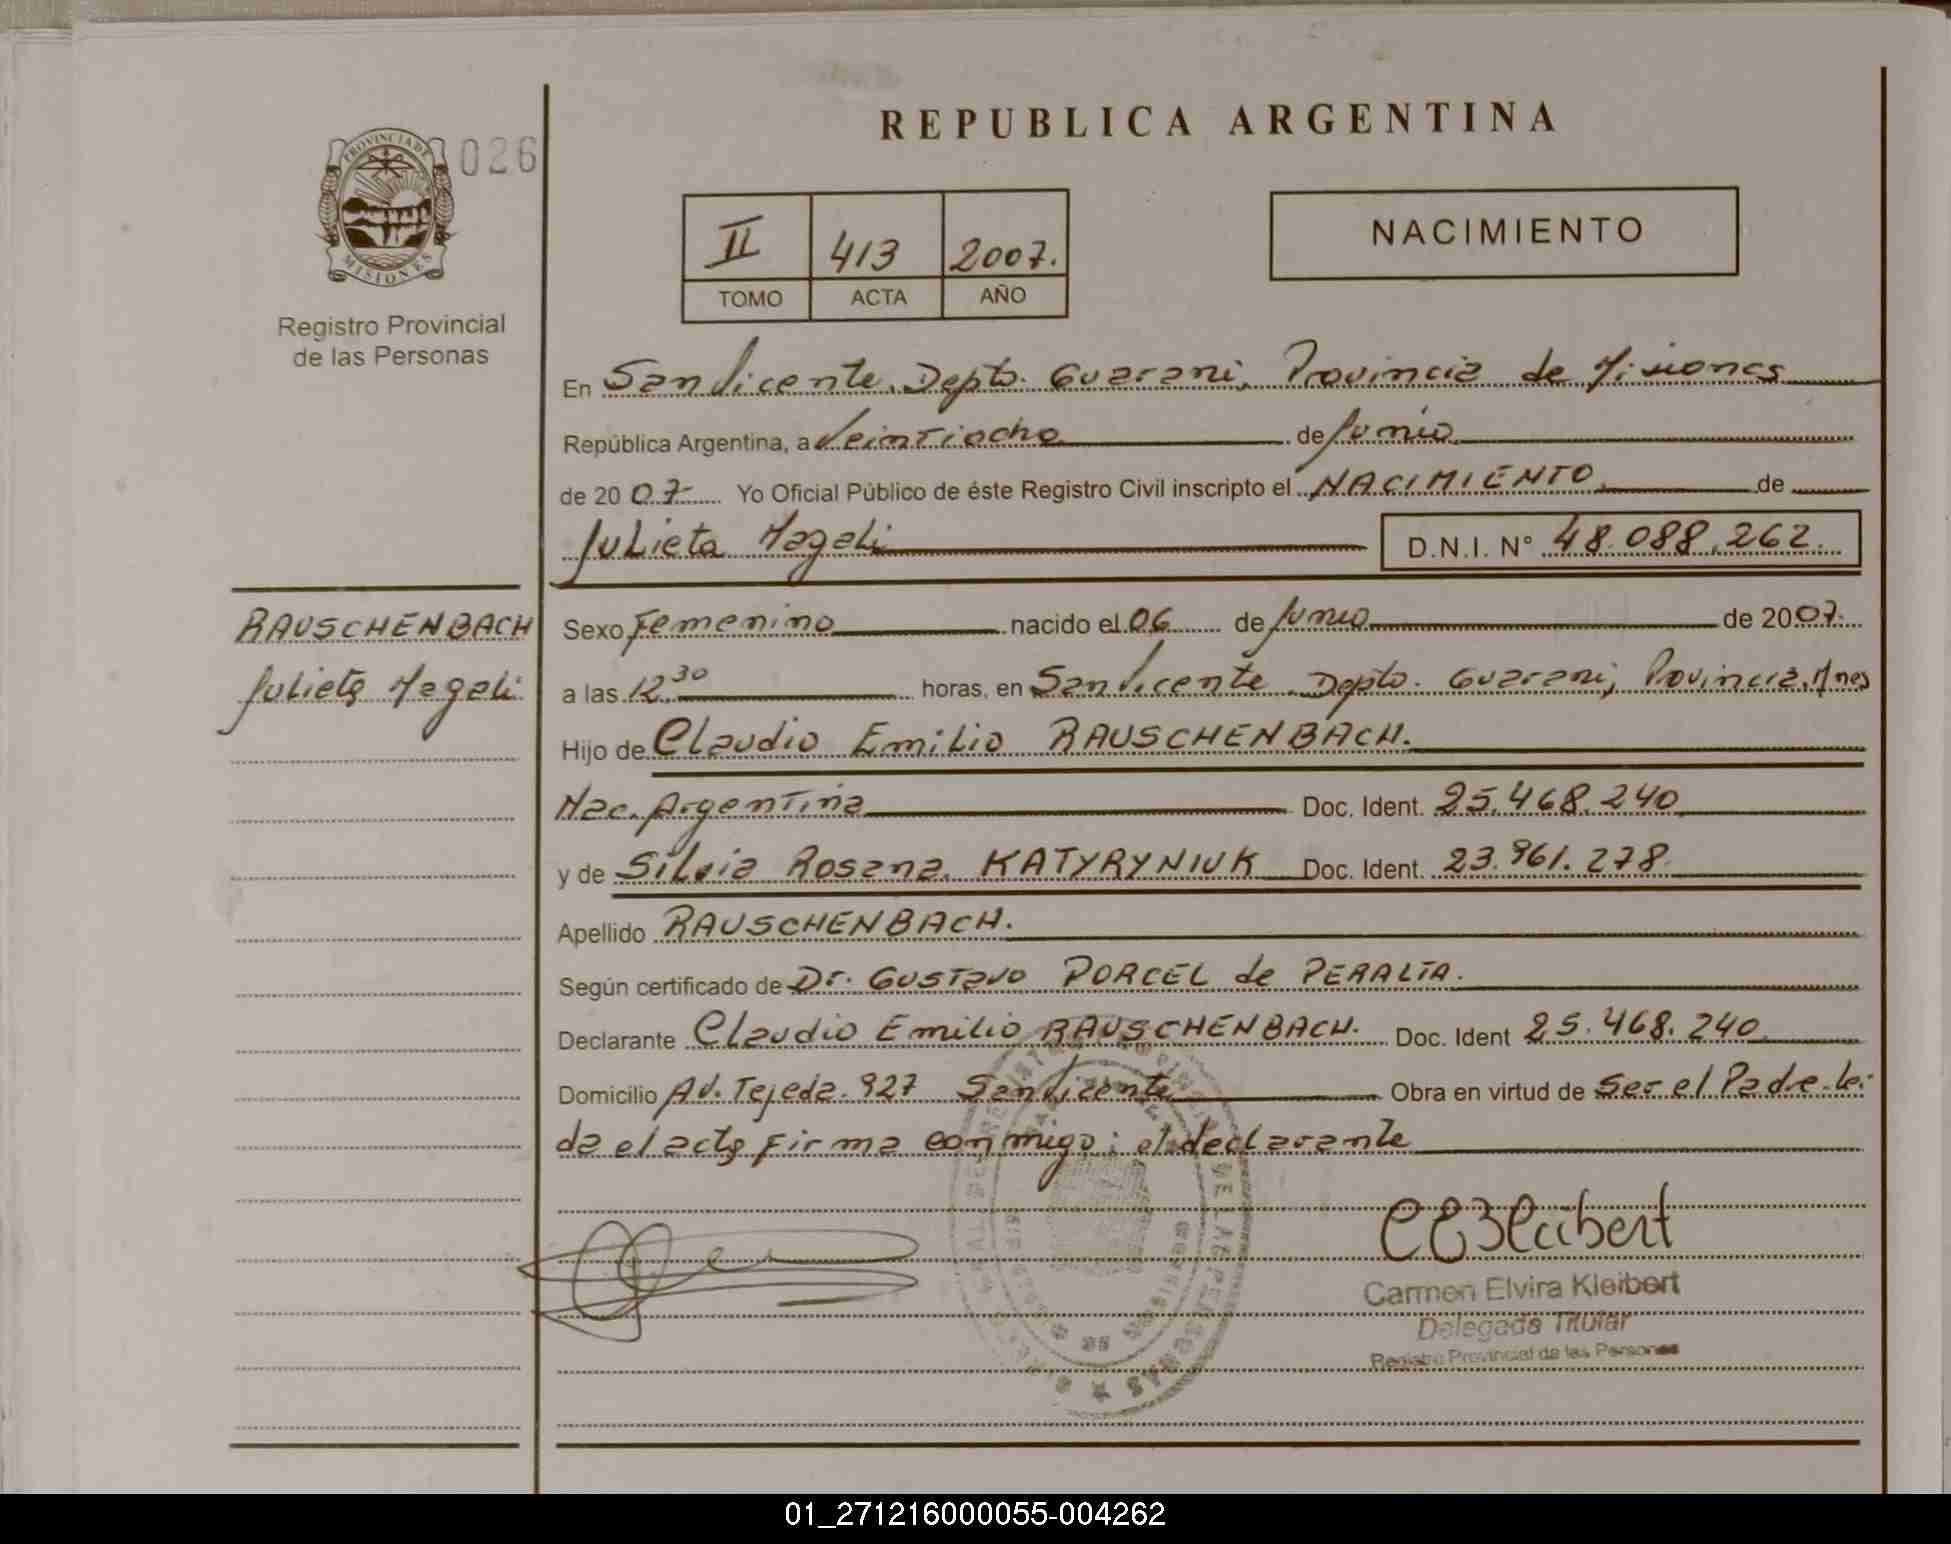 REPUBLICA ARGENTINA
PROVINCIA DE
MISIONES
026
Registro Provincial
de las Personas
II 413 2007.
TOMO ACTA AÑO
NACIMIENTO
En San Vicente. Depto. Guarani, Provincia de Misiones
República Argentina, a Veintiocho de Junio
de 2007 Yo Oficial Público de éste Registro Civil inscripto el NACIMIENTO de
Julieta Magali D.N.I. N° 48.088.262.
RAUSCHENBACH
Julieta Magali
Sexo Femenino nacido el 06 de Junio de 2007.
a las 12.30 horas, en San Vicente Depto. Guarani, Provincia. Mnes
Hijo de Claudio Emilio RAUSCHENBACH.
Nac. Argentina Doc. Ident. 25.468.240
y de Silvia Rosana KATYRYNIUK Doc. Ident. 23.961.278
Apellido RAUSCHENBACH.
Según certificado de Dr. Gustavo PORCEL de PERALTA.
Declarante Claudio Emilio RAUSCHENBACH. Doc. Ident 25.468.240
Domicilio Av. Tejeda 927 San Vicente Obra en virtud de Ser el Padre. lei
da el acta firma conmigo: el declarante
CEKleibert
Carmen Elvira Kleibert
Delegada Titular
Registro Provincial de las Personas
01_271216000055-004262